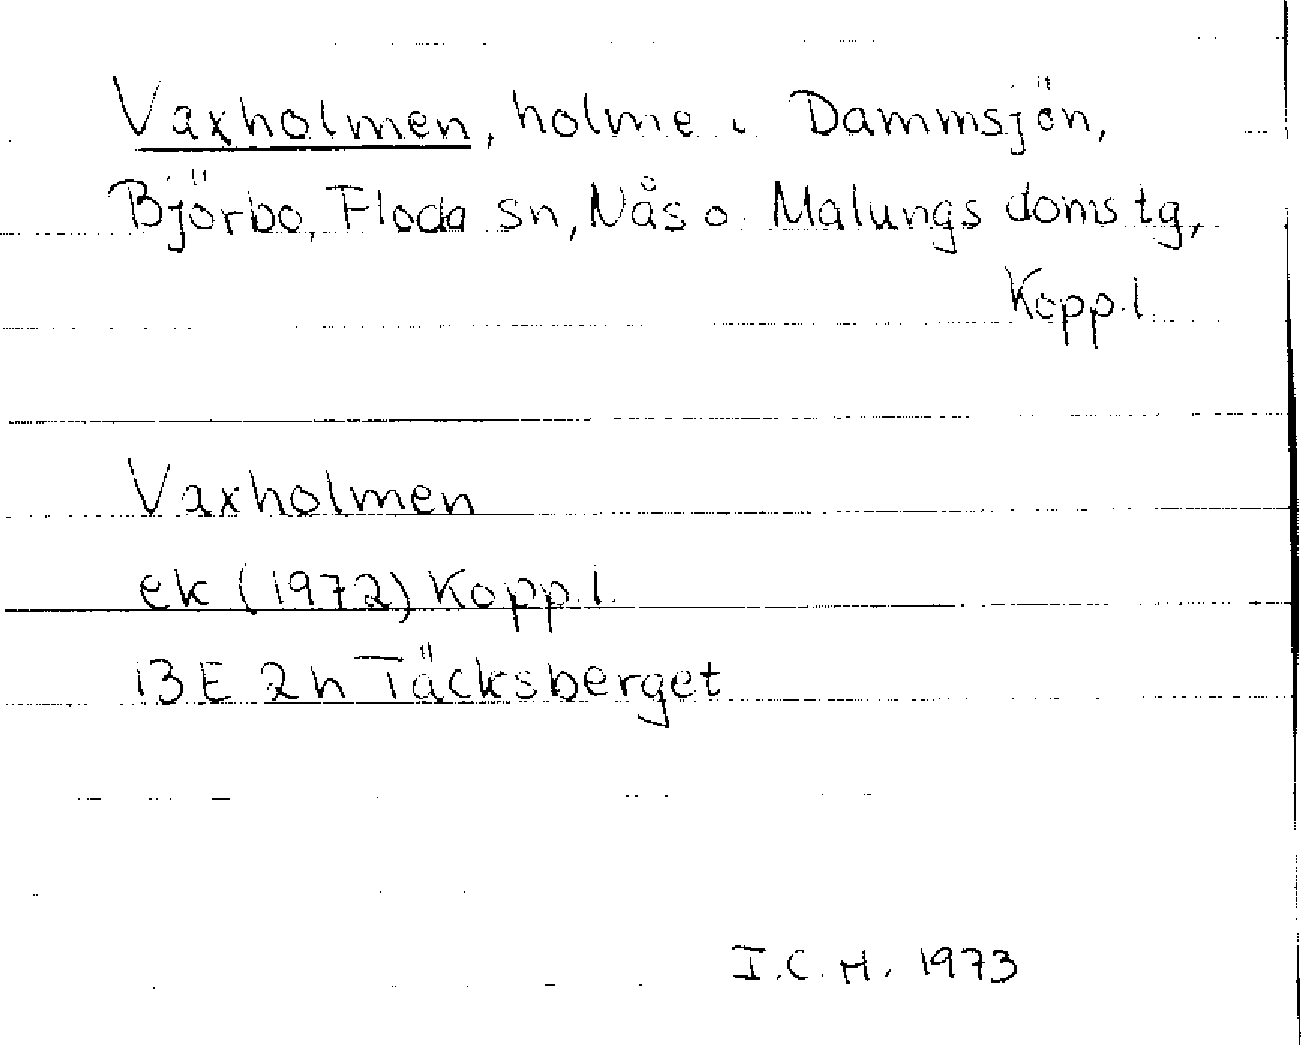 Vaxholmen, holme i Dammsjön,
Björbo, Floda sn, Nås o. Malungs domstg,
Kopp.l.
Vaxholmen
ek (1972) Kopp.l.
13E 2h Täcksberget
I.C.H. 1973